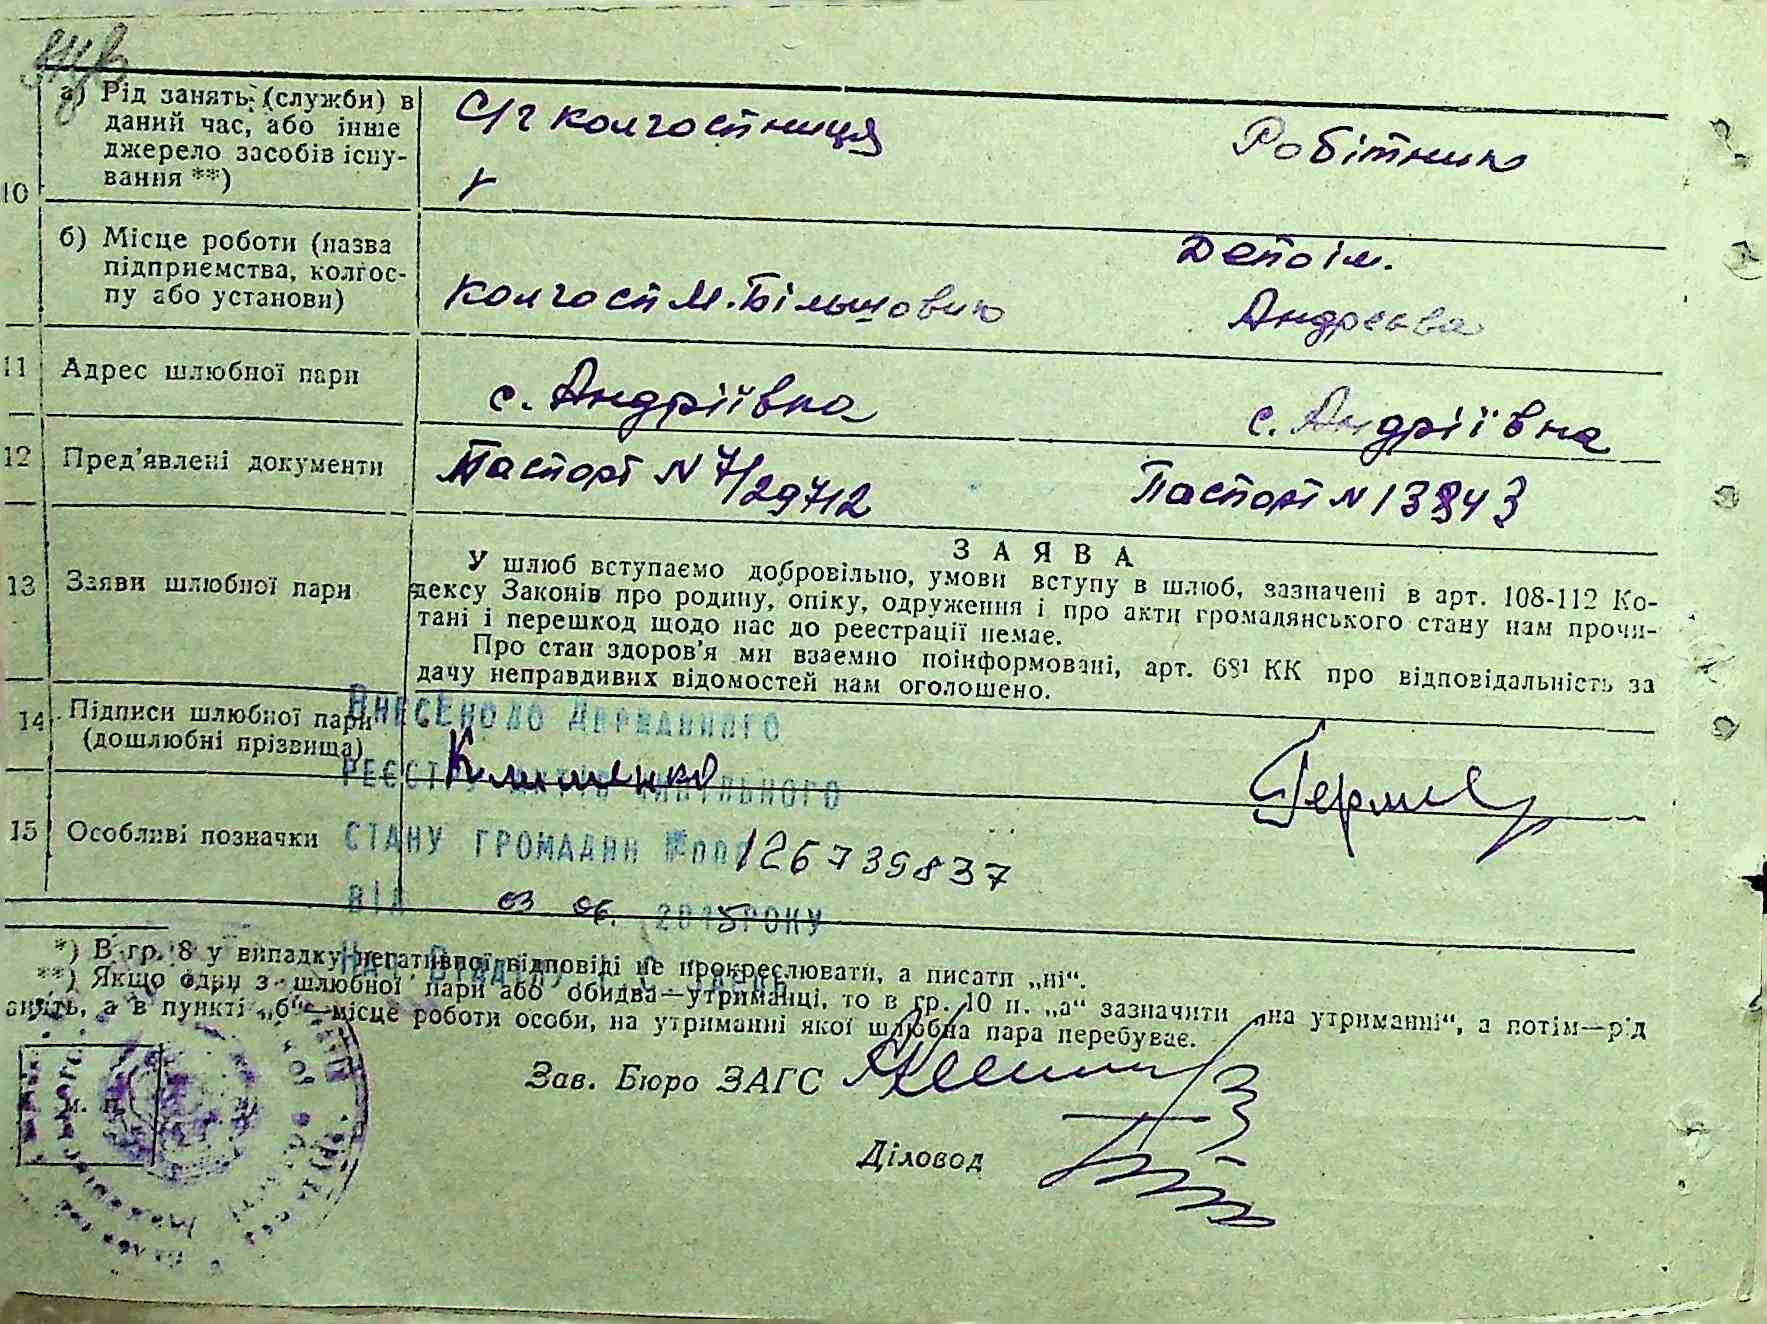 10
а) Рід занять (служби) в
даний час, або інше
джерело засобів існу-
вання **)
С/г колгоспниця
Робітник
б) Місце роботи (назва
підприємства, колгос-
пу або установи)
колгосп М. Більшовик
Депо ім.
Андреєва
11 Адрес шлюбної пари
с. Андріївка
с. Андріївка
12 Пред'явлені документи
Паспорт N 7/29712
Паспорт N 13843
13 Заяви шлюбної пари
ЗАЯВА
У шлюб вступаємо добровільно, умови вступу в шлюб, зазначені в арт. 108-112 Ко-
дексу Законів про родину, опіку, одруження і про акти громадянського стану нам прочи-
тані і перешкод щодо нас до реєстрації немає.
Про стан здоров'я ми взаємно поінформовані, арт. 68¹ КК про відповідальність за
дачу неправдивих відомостей нам оголошено.
14 Підписи шлюбної пари
(дошлюбні прізвища)
Клименко
ВНЕСЕНО ДО ДЕРЖАВНОГО
РЕЄСТРУ АКТІВ ЦИВІЛЬНОГО
СТАНУ ГРОМАДЯН №000126739837
ВІД 03 06. 2015 РОКУ
15 Особливі позначки
*) В гр. 8 у випадку негативної відповіді не прокреслювати, а писати „ні“.
**) Якщо один з шлюбної пари або обидва—утриманці, то в гр. 10 п. „а“ зазначити „на утриманні“, а потім—рід
занять, а в пункті „б“—місце роботи особи, на утриманні якої шлюбна пара перебуває.
Зав. Бюро ЗАГС
м. п.
Діловод